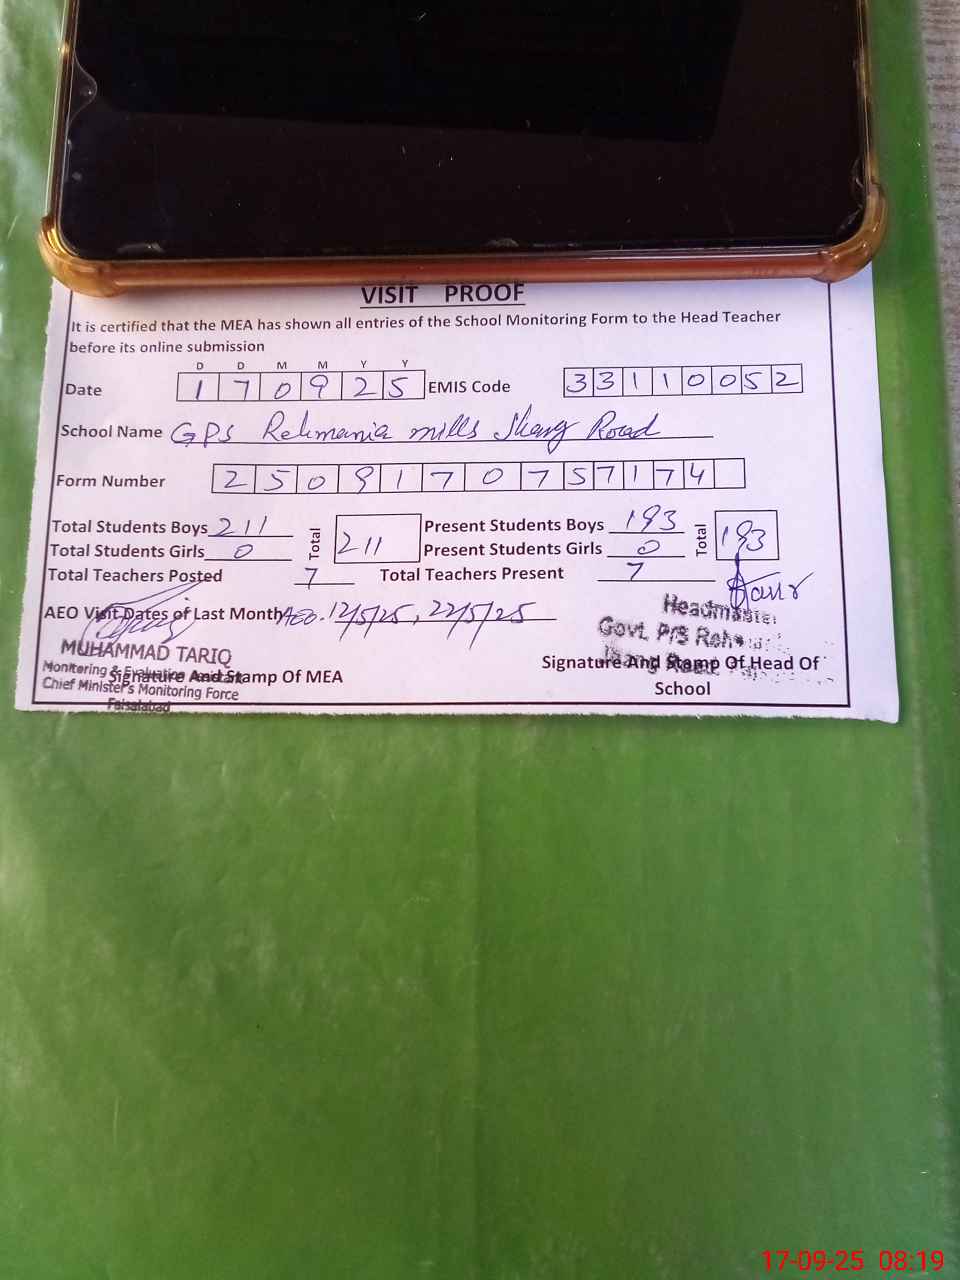 VISIT PROOF
It is certified that the MEA has shown all entries of the School Monitoring Form to the Head Teacher
before its online submission
D D M M Y Y
Date 1 7 0 9 2 5 EMIS Code 3 3 1 1 0 0 5 2
School Name GPS Rehmania mills Jhang Road
Form Number 2 5 0 9 1 7 0 7 5 7 1 7 4
Total Students Boys 211 Total 211 Present Students Boys 193 Total 193
Total Students Girls 0 Present Students Girls 0
Total Teachers Posted 7 Total Teachers Present 7
AEO Visit Dates of Last Month AEO. 12/5/25, 22/5/25
Headmaster
Govt. P/S
Jhang Road
MUHAMMAD TARIQ
Monitoring & Evaluation Assistant
Chief Minister's Monitoring Force
Faisalabad
Signature And Stamp Of MEA
Signature And Stamp Of Head Of
School
17-09-25 08:19